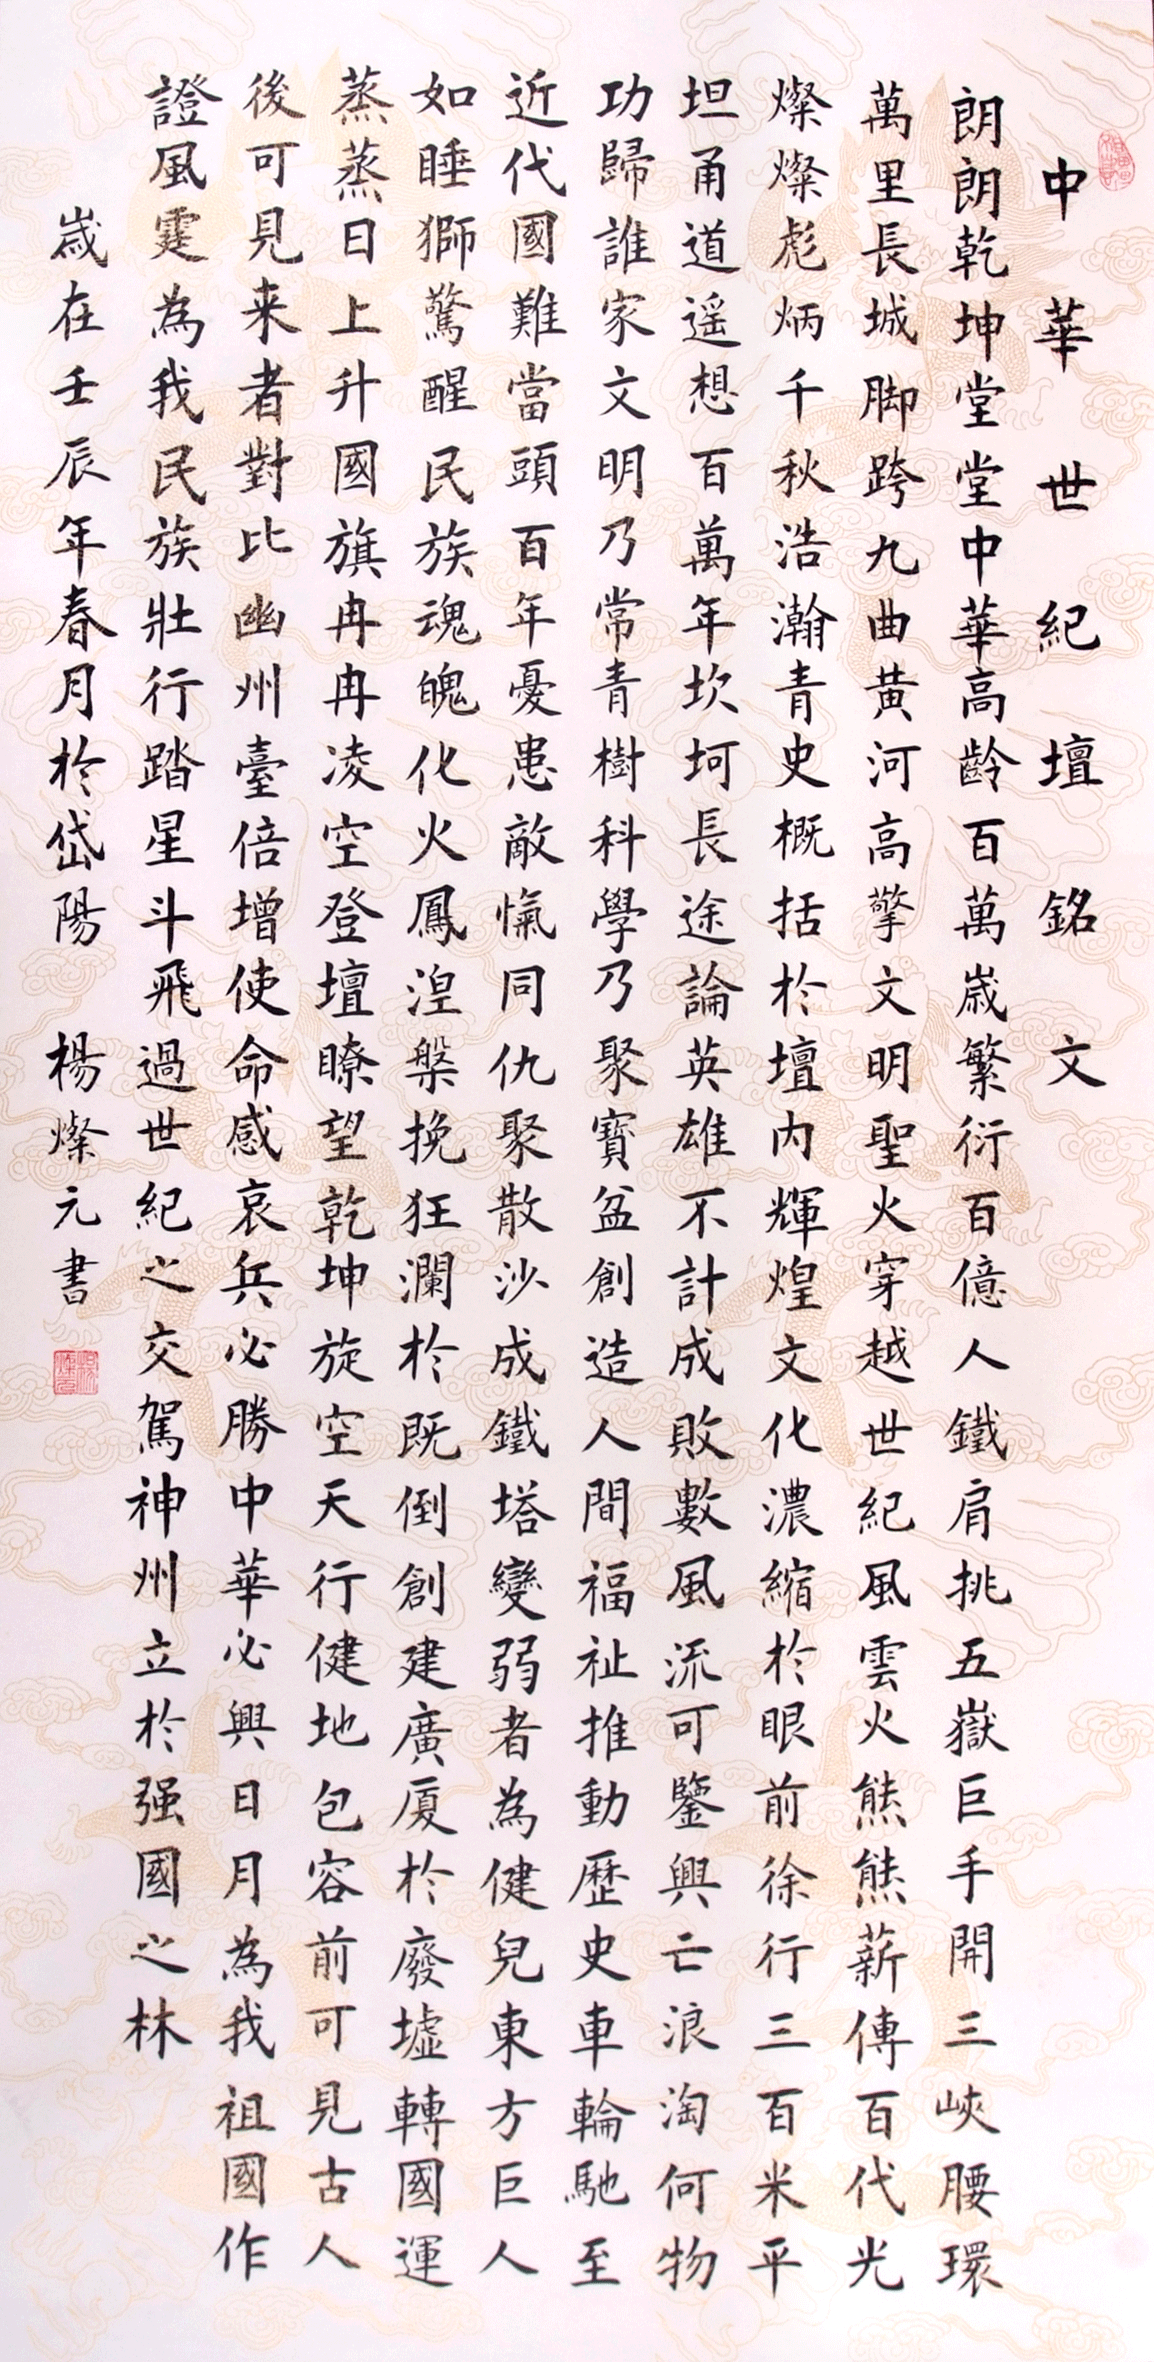 中華世紀壇銘文
朗朗乾坤堂堂中華高齡百萬歲繁衍百億人鐵肩挑五嶽巨手開三峽腰環
萬里長城脚跨九曲黄河高擎文明聖火穿越世紀風雲火熊熊薪傳百代光
燦燦彪炳千秋浩瀚青史概括於壇内輝煌文化濃縮於眼前徐行三百米平
坦甬道遥想百萬年坎坷長途論英雄不計成敗數風流可鑒興亡浪淘何物
功歸誰家文明乃常青樹科學乃聚寶盆創造人間福祉推動歷史車輪馳至
近代國難當頭百年憂患敵愾同仇聚散沙成鐵塔變弱者為健兒東方巨人
如睡獅驚醒民族魂魄化火鳳涅槃挽狂瀾於既倒創建廣厦於廢墟轉國運
蒸蒸日上升國旗冉冉凌空登壇瞭望乾坤旋空天行健地包容前可見古人
後可見来者對比幽州臺倍增使命感哀兵必勝中華必興日月為我祖國作
證風霆為我民族壯行踏星斗飛過世紀之交駕神州立於强國之林
歲在壬辰年春月於岱陽 楊燦元書